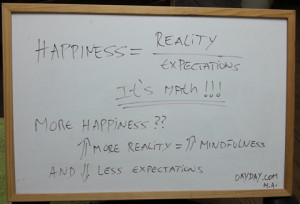 HAPPINESS = REALITY
EXPECTATIONS
It's MATH!!!
MORE HAPPINESS ??
⇑ MORE REALITY = ⇑ MINDFULNESS
AND ⇓ LESS EXPECTATIONS
DAYDAY.COM
M.A.